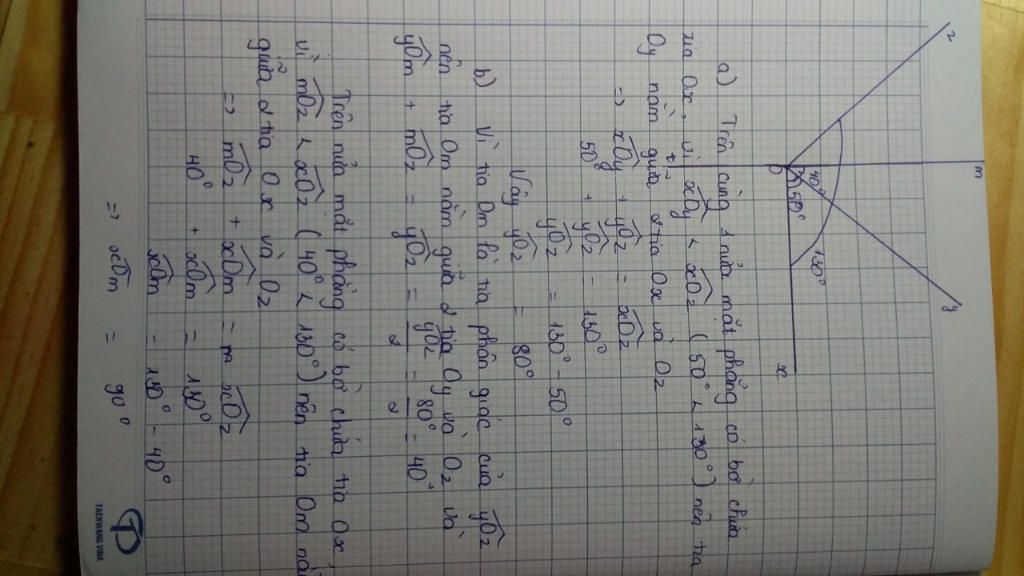 z
m
y
40°
50°
130°
O
x
a) Trên cùng 1 nửa mặt phẳng có bờ chứa
tia Ox, vì xOy < xOz (50° < 130°) nên tia
Oy nằm giữa 2 tia Ox và Oz
=> xOy + yOz = xOz
50° + yOz = 130°
yOz = 130° - 50°
Vậy yOz = 80°
b) Vì tia Om là tia phân giác của yOz
nên tia Om nằm giữa 2 tia Oy và Oz và
yOm + mOz = yOz = yOz/2 = 80°/2 = 40°
Trên nửa mặt phẳng có bờ chứa tia Ox,
vì mOz < xOz (40° < 130°) nên tia Om nằ
giữa 2 tia Ox và Oz
=> mOz + xOm = xOz
40° + xOm = 130°
xOm = 130° - 40°
=> xOm = 90°
TAEKWANG VINA